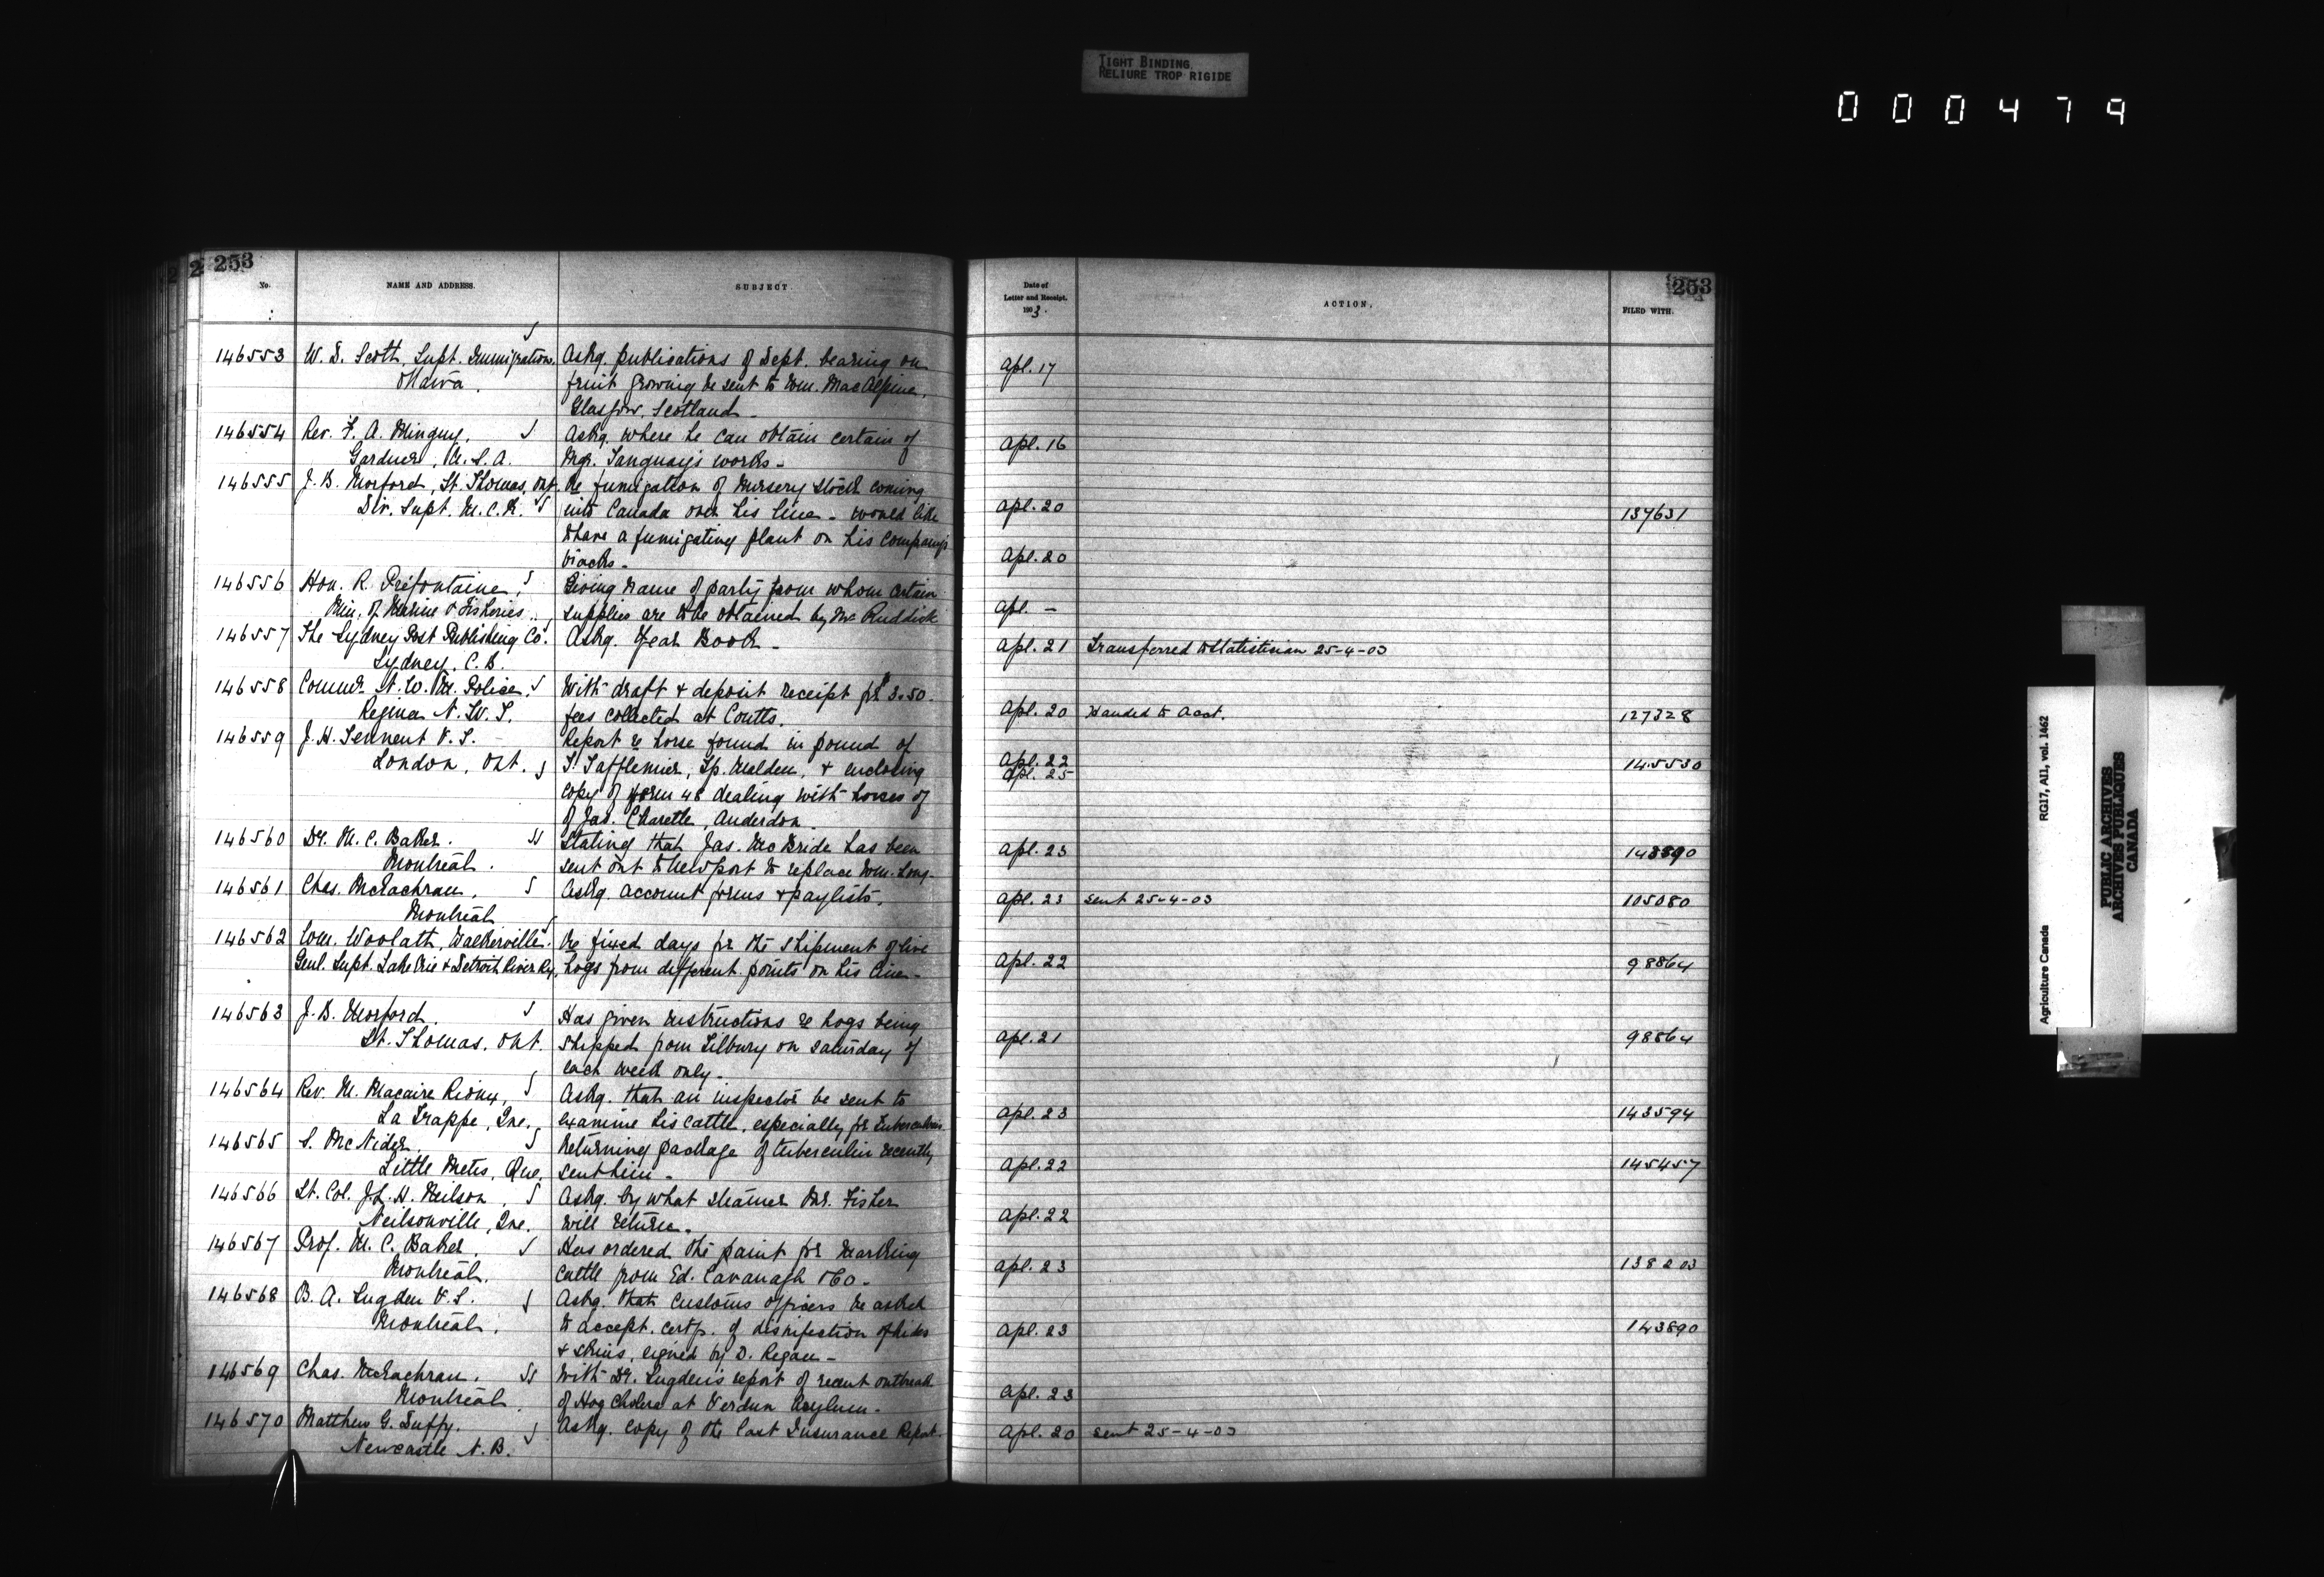 TIGHT BINDING
RELIURE TROP RIGIDE
000479
253
No.
NAME AND ADDRESS.
SUBJECT
146553 W. D. Scott, Supt. Immigration. Askg. publications of Dept. bearing on
Ottawa. fruit growing be sent to Wm. MacAlpine,
Glasgow, Scotland -
146554 Rev. F. A. Minguy, Askg. where he can obtain certain of
Gardner, U.S.A. Mgr. Tanguay's works -
146555 J. B. Morford, St. Thomas, Ont. Re fumigation of nursery stock coming
Div. Supt. M.C.R. into Canada over his line - would like
to have a fumigating plant on his company's
tracks -
146556 Hon. R. Prefontaine, Giving name of party from whom certain
Min. of Marine & Fisheries. supplies are to be obtained by Mr Ruddick
146557 The Sydney Post Publishing Co. Askg. Year Book -
Sydney, C.B.
146558 Commr. N.W.M. Police, With draft & deposit receipt for $3.50
Regina N.W.T. fees collected at Coutts.
146559 J. H. Tennent V.S. Report re horse found in pound of
London, Ont. T. Tafflemier, Tp. Malden, & enclosing
copy of form 48 dealing with horses of
of Jas. Charette, Anderdon.
146560 Dr. M. C. Baker. Stating that Jas. McBride has been
Montreal. sent out to Newport to replace Wm. Long-
146561 Chas. McEachran, Askg. account forms & paylists.
Montreal
146562 Wm. Woolatt, Walkerville. Re fixed days for the shipment of live
Genl. Supt. Lake Erie & Detroit River Ry, hogs from different points on his line -
146563 J. B. Morford. Has given instructions re hogs being
St. Thomas, Ont. shipped from Tilbury on Saturday of
each week only -
146564 Rev. M. Macaire Rioux, Askg. that an inspector be sent to
La Trappe, Que. examine his cattle, especially for tuberculosis
146565 S. McNider, Returning package of tuberculin recently
Little Metis, Que. sent him -
146566 Lt. Col. J.L.H. Neilson, Askg. by what steamer Mr. Fisher
Neilsonville, Que. will return -
146567 Prof. M. C. Baker, Has ordered the paint for marking
Montreal. cattle from Ed. Cavanagh & Co -
146568 B. A. Sugden V.S. Askg. that Customs officers be asked
Montreal. to accept certf. of disinfection of hides
& skins, signed by D. Regan -
146569 Chas. McEachran. With Dr. Sugden's report of recent outbreak
Montreal. of Hog Cholera at Verdun Asylum -
146570 Matthew G. Duffy. Askg. copy of the last Insurance Report.
Newcastle N.B.
253
Date of
Letter and Receipt.
1903.
ACTION.
FILED WITH.
Apl. 17
Apl. 16
Apl. 20 137631
Apl. 20
Apl. -
Apl. 21 Transferred to Statistician 25-4-03
Apl. 20 Handed to Acct. 127328
Apl. 22 145530
Apl. 25
Apl. 23
Apl. 23 sent 25-4-03 105080
Apl. 22 98864
Apl. 21 98864
Apl. 23 143594
Apl. 22 145457
Apl. 22
Apl. 23 138203
Apl. 23 143890
Apl. 23
Apl. 20 sent 25-4-03
Agriculture Canada RG17, AII, vol. 1462
PUBLIC ARCHIVES
ARCHIVES PUBLIQUES
CANADA